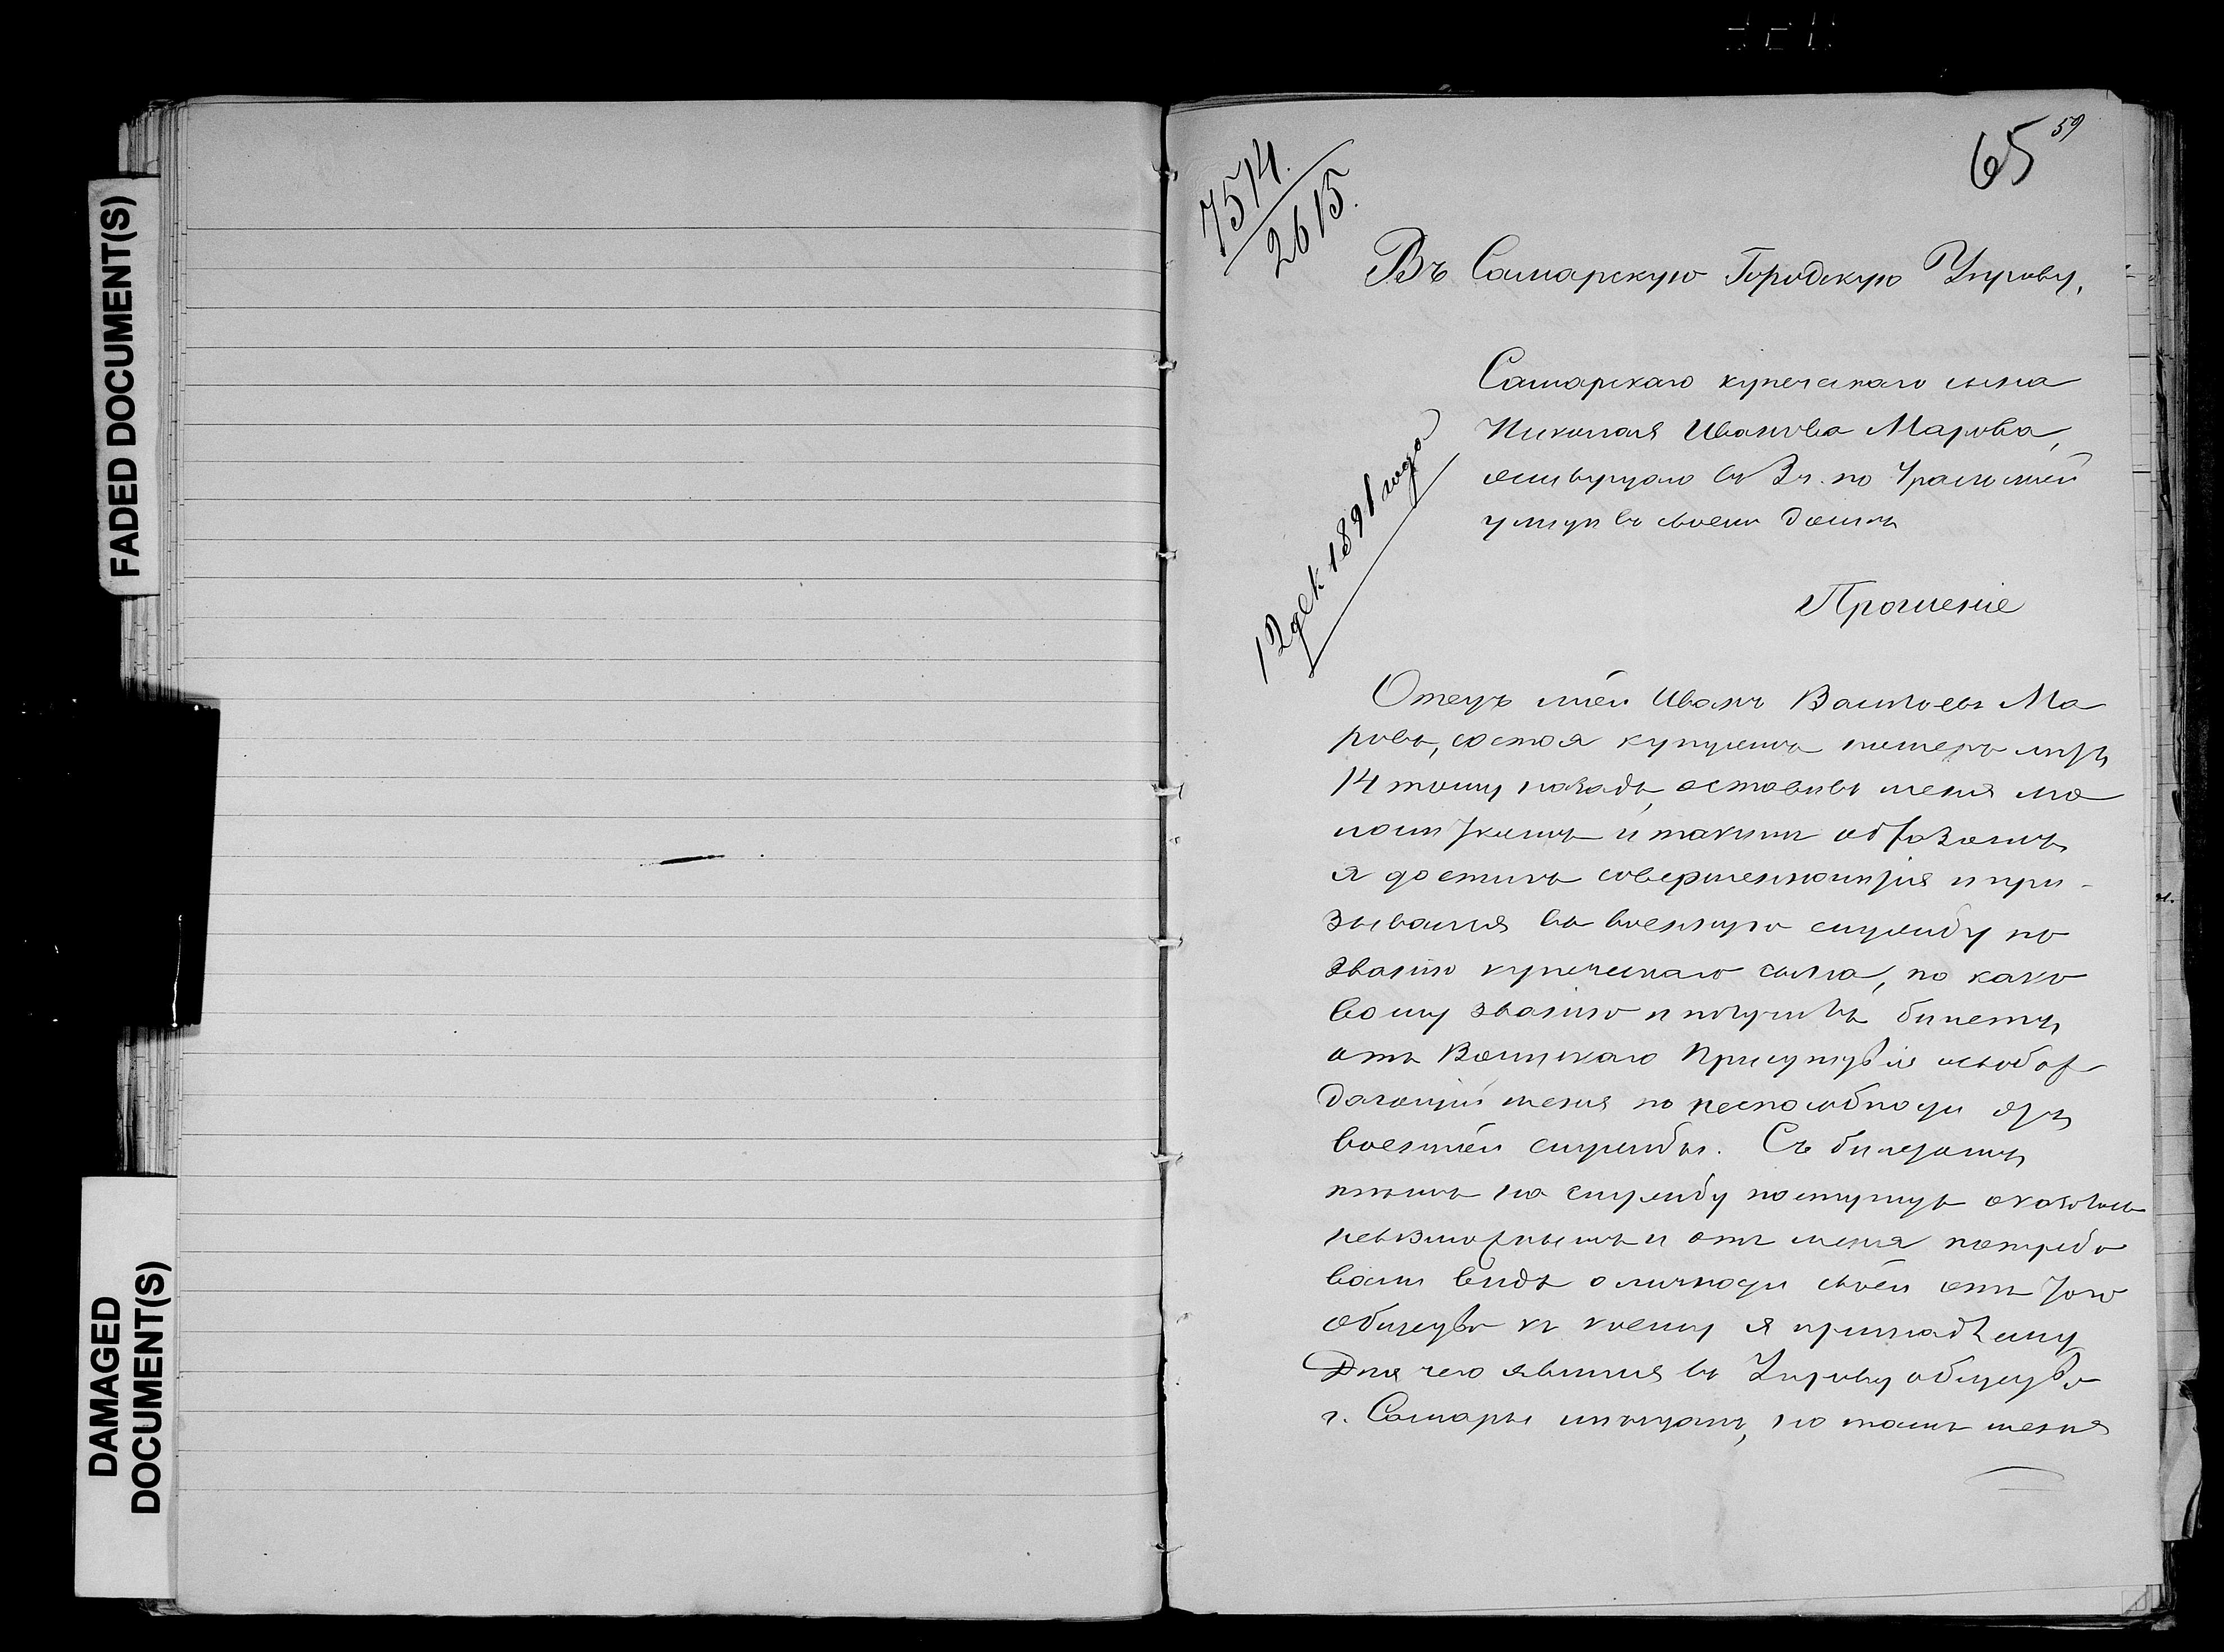 FADED DOCUMENT(S)
DAMAGED
DOCUMENT(S)
65 59
7514.
2615.
Въ Самарскую Городскую Управу.
12 дек 1891 года
Самарскаго купеческаго сына
Николая Иванова Марова,
живущаго въ 3 ч. по Уральской
улицѣ въ своемъ домѣ
Прошеніе
Отецъ мой Иванъ Васильевъ Ма
ровъ, состоя купцемъ померъ лѣтъ
14 тому назадъ, оставивъ меня ма
лолѣткомъ и такимъ образомъ
я достигъ совершеннолѣтія и при-
зывался въ военную службу по
званію купеческаго сына, по како
вому званію и получилъ билетъ
отъ Воинскаго Присутствія освобож
дающій меня по неспособности отъ
военной службы. Съ билетомъ
этимъ на службу поступить оказалось
невозможнымъ и отъ меня потребо
вали видъ о личности своей отъ того
общества къ коему я принадлежу
Для чего явился въ Управу общества
г. Самары мѣщанъ, но тамъ меня